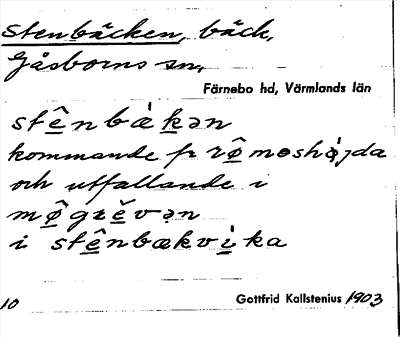 Stenbäcken, bäck,
Gåsborns sn,
Färnebo hd, Värmlands län
stê̱nbæ̀ḵən
kommande fr rø̱̂moshø̱̀jda
och utfallande i
mø̱̂grė̱̌vən
i stê̱nbækvì̱ka
10
Gottfrid Kallstenius 1903